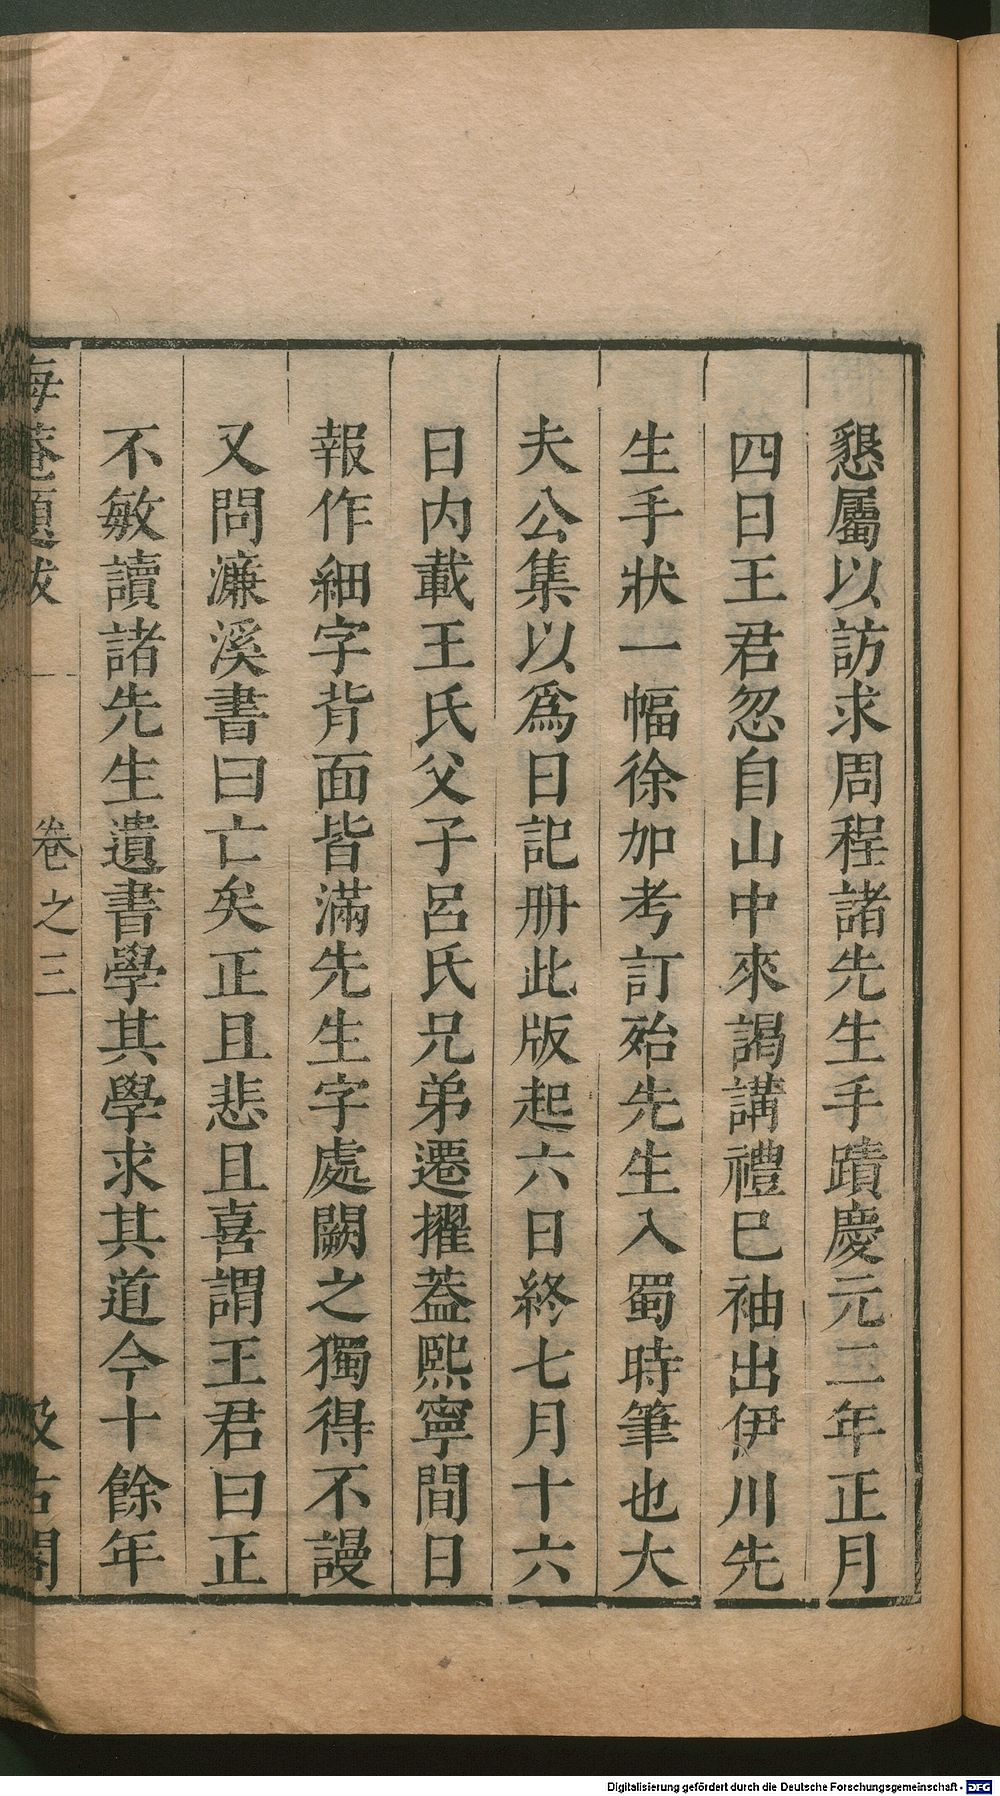 懇屬以訪求周程諸先生手蹟慶元二年正月
四日王君忽自山中來謁講禮巳袖出伊川先
生手狀一幅徐加考訂殆先生入蜀時筆也大
夫公集以爲日記册此版起六日終七月十六
日内載王氏父子呂氏兄弟遷擢葢熙寧間日
報作細字背面皆滿先生字處闕之獨得不謾
又問濂溪書曰亡矣正且悲且喜謂王君曰正
不敏讀諸先生遺書學其學求其道今十餘年
海菴題跋 卷之三 汲古閣
Digitalisierung gefördert durch die Deutsche Forschungsgemeinschaft - DFG